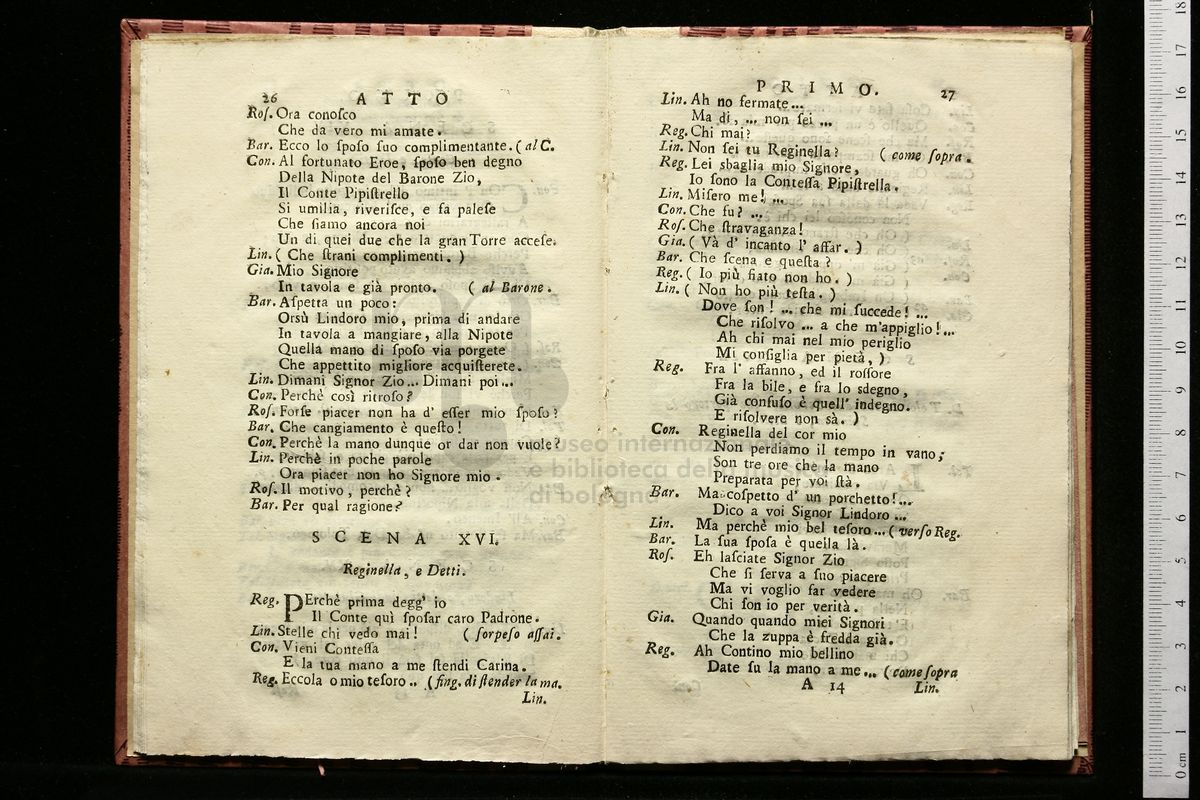 26 ATTO
Roſ. Ora conoſco
Che da vero mi amate.
Bar. Ecco lo ſpoſo ſuo complimentante. ( al C.
Con. Al fortunato Eroe, ſpoſo ben degno
Della Nipote del Barone Zio,
Il Conte Pipiſtrello
Si umilia, riveriſce, e fa paleſe
Che ſiamo ancora noi
Un di quei due che la gran Torre acceſe.
Lin. ( Che ſtrani complimenti. )
Gia. Mio Signore
In tavola e già pronto. ( al Barone.
Bar. Aſpetta un poco:
Orsù Lindoro mio, prima di andare
In tavola a mangiare, alla Nipote
Quella mano di ſpoſo via porgete
Che appettito migliore acquiſterete.
Lin. Dimani Signor Zio... Dimani poi...
Con. Perchè così ritroſo?
Roſ. Forſe piacer non ha d' eſſer mio ſpoſo?
Bar. Che cangiamento è queſto!
Con. Perchè la mano dunque or dar non vuole?
Lin. Perchè in poche parole
Ora piacer non ho Signore mio.
Roſ. Il motivo, perchè?
Bar. Per qual ragione?
SCENA XVI.
Reginella, e Detti.
Reg. PErchè prima degg' io
Il Conte quì ſpoſar caro Padrone.
Lin. Stelle chi vedo mai! ( ſorpeſo aſſai.
Con. Vieni Conteſſa
E la tua mano a me ſtendi Carina.
Reg. Eccola o mio teſoro.. (fing. di ſtender la ma.
Lin.
PRIMO. 27
Lin. Ah no fermate...
Ma di, ... non ſei ...
Reg. Chi mai?
Lin. Non ſei tu Reginella? ( come ſopra.
Reg. Lei sbaglia mio Signore,
Io ſono la Conteſſa Pipiſtrella.
Lin. Miſero me! ...
Con. Che fu? ...
Roſ. Che ſtravaganza!
Gia. ( Và d' incanto l' affar. )
Bar. Che ſcena e queſta?
Reg. ( Io più fiato non ho. )
Lin. ( Non ho più teſta. )
Dove ſon! ... che mi ſuccede! ...
Che riſolvo ... a che m'appiglio!...
Ah chi mai nel mio periglio
Mi conſiglia per pietà, )
Reg. Fra l' affanno, ed il roſſore
Fra la bile, e fra lo sdegno,
Già confuſo è quell' indegno.
E riſolvere non sà. )
Con. Reginella del cor mio
Non perdiamo il tempo in vano;
Son tre ore che la mano
Preparata per voi ſtà.
Bar. Ma coſpetto d' un porchetto!...
Dico a voi Signor Lindoro ...
Lin. Ma perchè mio bel teſoro... ( verſo Reg.
Bar. La ſua ſpoſa è quella là.
Roſ. Eh laſciate Signor Zio
Che ſi ſerva a ſuo piacere
Ma vi voglio far vedere
Chi ſon io per verità.
Gia. Quando quando miei Signori
Che la zuppa è fredda già.
Reg. Ah Contino mio bellino
Date ſu la mano a me... ( come ſopra
A 14 Lin.
museo internazionale
e biblioteca della musica
di bologna
0 cm 1 2 3 4 5 6 7 8 9 10 11 12 13 14 15 16 17 18